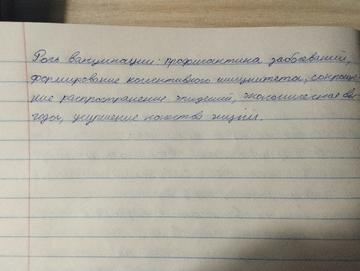 Роль вакцинации: профилактика заболеваний,
формирование коллективного иммунитета, сокраще-
ние распространение эпидемий, экономическая вы-
года, улучшение качества жизни.